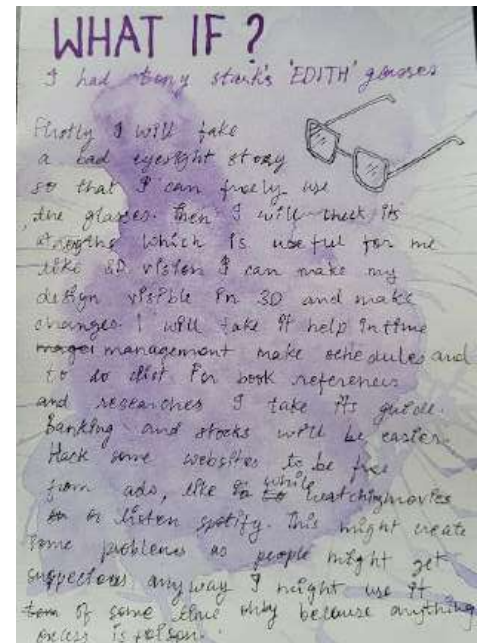 WHAT IF?
I had tony stark's 'EDITH' glasses
Firstly I will fake
a bad eyesight story
so that I can freely use
the glasses. Then I will check its
strengths which is useful for me
like 3D vision I can make my
design visible in 3D and make
changes. I will take it help in time
management make schedules and
to do list. For book references
and researches I take its guide.
Banking and stocks will be easier.
Hack some websites to be free
from ads, like while watching movies
or listen spotify. This might create
some problems as people might get
suspectous anyway I might use it
of some time only because anything
excess is poison.